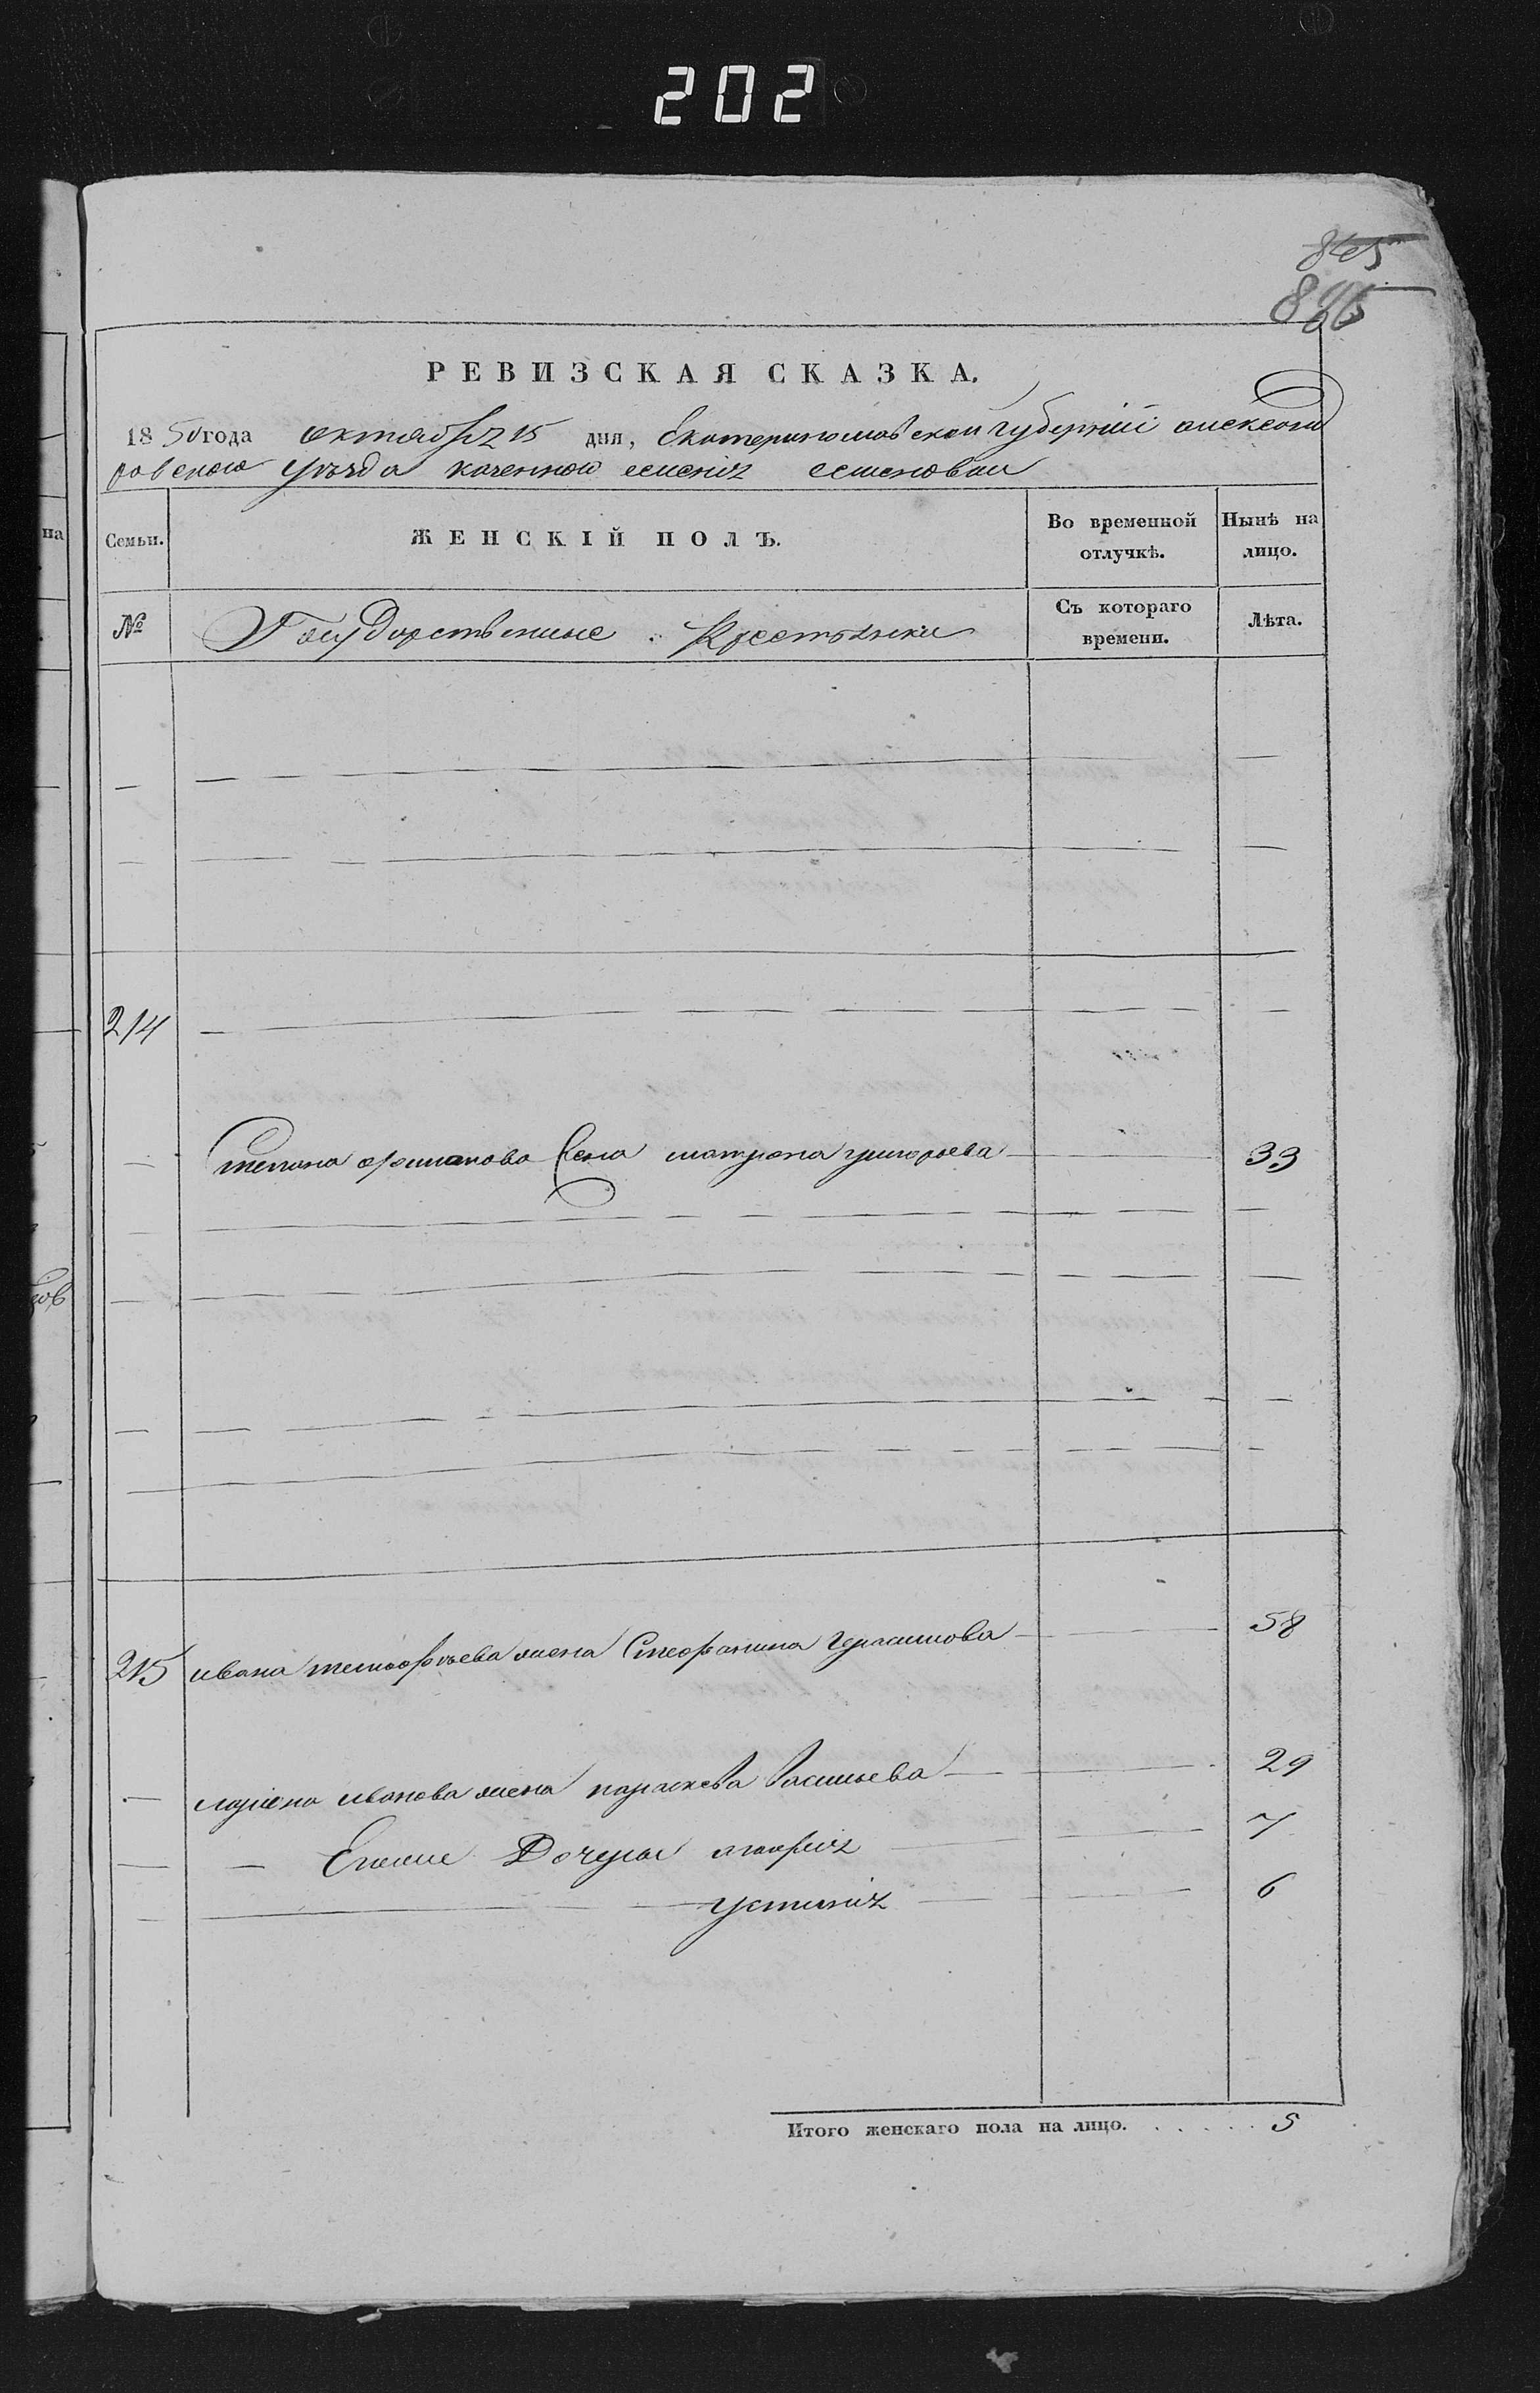 202
865
РЕВИЗСКАЯ СКАЗКА.
1850 года октября 15 дня, Екатеринославской губерніи александ
ровского уезда казенной селенія семеновки
Семьи.
ЖЕНСКІЙ ПОЛЪ.
Во временной отлучкѣ.
Нынѣ на лицо.
№
Государственные Крестьянки
Съ котораго времени.
Лѣта.
214
жена матрона григорьева 33
215 ивана тимофѣева жена Стефанида Герасимова 58
иванова жена параскева васильева 29
Егоже Дочери марія 7
устинія 6
Итого женскаго пола на лицо. . . . . . 5